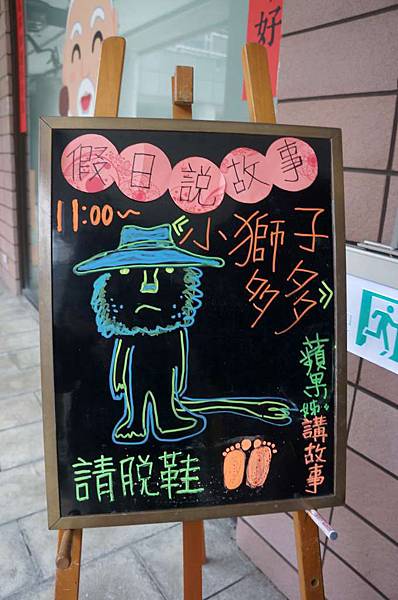 好
假日說故事
11:00~
《小獅子
多多》
蘋果姊姊講故事
請脫鞋